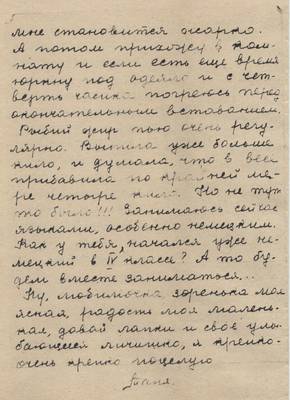 мне становится жарко.
А потом прихожу в ком-
нату и если есть еще время
юркну под одеяло и с чет-
верть часика погреюсь перед
окончательным вставанием.
Рыбий жир пью очень регу-
лярно. Выпила уже больше
кило, и думала, что в весе
прибавила по крайней ме-
ре четыре кило. Но не тут-
то было!!! Занимаюсь сейчас
языками, особенно немецким.
Как у тебя, начался уже не-
мецкий в IV классе? А то бу-
дем вместе заниматься...
Ну, любимочка, зоренька моя
ясная, радость моя малень-
кая, давай лапки и свое улы-
бающееся личишко, я крепко-
очень крепко поцелую
Таня.